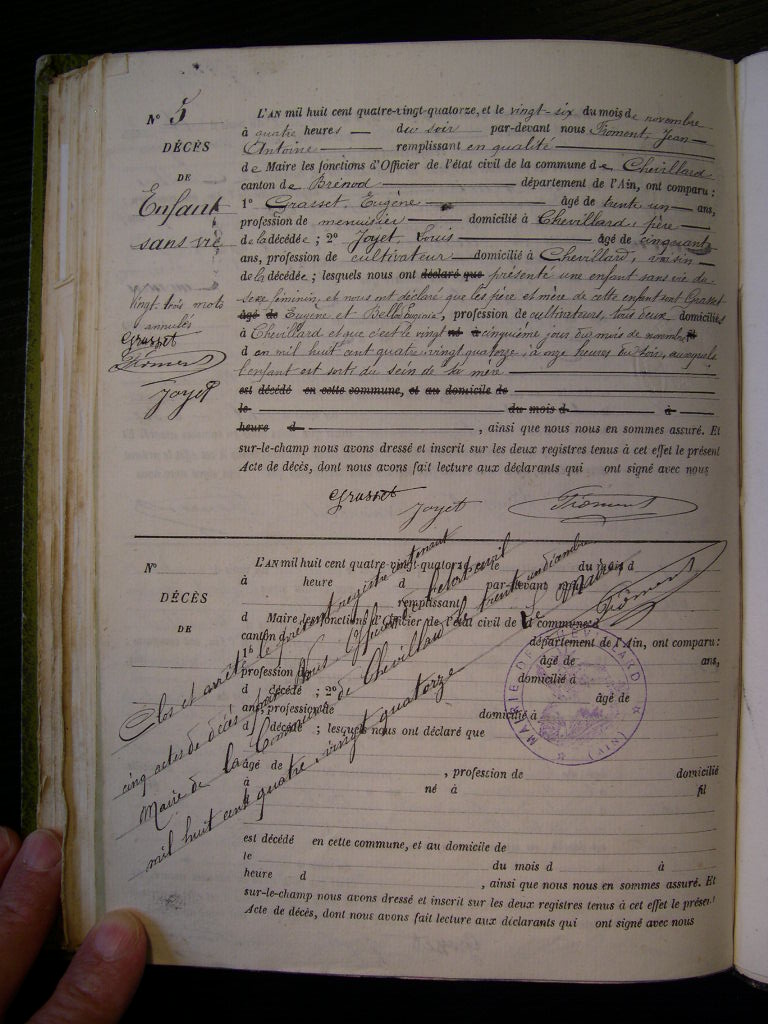 N° 5
DÉCÈS
DE
Enfant
sans vie
vingt-trois mots
annulés
Grasset
Froment
Joyet
L'AN mil huit cent quatre-vingt-quatorze, et le vingt-six du mois de novembre
à quatre heures du soir par-devant nous Froment, Jean
Antoine remplissant en qualité
de Maire les fonctions d'Officier de l'état civil de la commune de Chevillard
canton de Brénod département de l'Ain, ont comparu :
1° Grasset, Eugène âgé de trente un ans,
profession de menuisier domicilié à Chevillard, père
de la décédée ; 2° Joyet, Louis âgé de cinquante
ans, profession de cultivateur domicilié à Chevillard, voisin
de la décédée ; lesquels nous ont déclaré que présenté une enfant sans vie du
sexe féminin, et nous ont déclaré que les père et mère de cette enfant sont Grasset
âgé de Eugène et Bellod Eugénie, profession de cultivateurs, tous deux domiciliés
à Chevillard et que c'est le vingt né à cinquième jour du mois de novembre
d en mil huit cent quatre-vingt quatorze, à onze heures du soir, auxquels
l'enfant est sorti du sein de sa mère
est décédé en cette commune, et au domicile de
le du mois d à
heure d , ainsi que nous nous en sommes assuré. Et
sur-le-champ nous avons dressé et inscrit sur les deux registres tenus à cet effet le présent
Acte de décès, dont nous avons fait lecture aux déclarants qui ont signé avec nous
Grasset Joyet Froment
N°
DÉCÈS
DE
L'AN mil huit cent quatre-vingt-quatorze, et le du mois d
à heure d par-devant nous
remplissant
d Maire les fonctions d'Officier de l'état civil de la commune d
canton d département de l'Ain, ont comparu :
1° âgé de ans,
profession de domicilié à
d décédé ; 2° âgé de
ans, profession de domicilié à
d décédé ; lesquels nous ont déclaré que
âgé de , profession de domicilié
à né à fil
est décédé en cette commune, et au domicile de
le du mois d à
heure d , ainsi que nous nous en sommes assuré. Et
sur-le-champ nous avons dressé et inscrit sur les deux registres tenus à cet effet le présent
Acte de décès, dont nous avons fait lecture aux déclarants qui ont signé avec nous
Clos et arrêté le présent registre contenant
cinq actes de décès par nous Officier de l'état civil
Maire de la Commune de Chevillard le trente un décembre
mil huit cent quatre-vingt quatorze
Le Maire
Froment
MAIRIE DE CHEVILLARD (AIN)